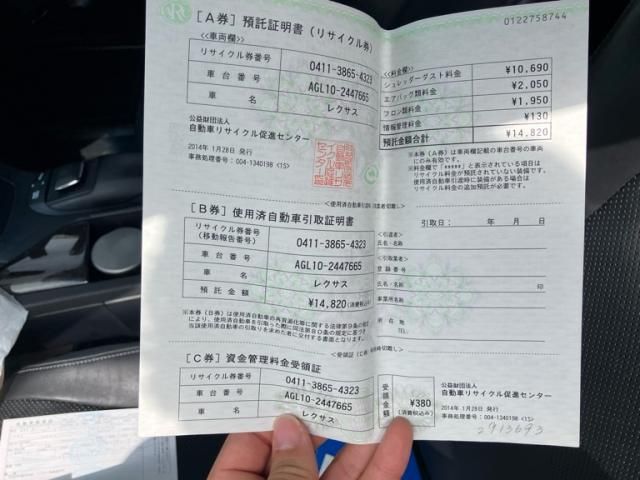 0122758744
[A券] 預託証明書 (リサイクル券)
<<車両欄>>
リサイクル券番号 0411-3865-4323
車台番号 AGL10-2447665
車名 レクサス
公益財団法人
自動車リサイクル促進センター
2014年 1月28日 発行
事務処理番号:004-1340198 <1S>
<<料金欄>>
シュレッダーダスト料金 ¥10,690
エアバッグ類料金 ¥2,050
フロン類料金 ¥1,950
情報管理料金 ¥130
預託金額合計 ¥14,820
※本券(A券)は車両欄記載の車台番号の車両
にのみ有効です。
※料金欄に「*****」と表示されている項目は
リサイクル料金が預託されていない装備です。
使用済自動車引渡時に装備がある場合は
リサイクル料金の追加預託が必要です。
[B券] 使用済自動車引取証明書
リサイクル券番号
(移動報告番号) 0411-3865-4323
車台番号 AGL10-2447665
車名 レクサス
預託金額 ¥14,820(消費税込み)
※本券(B券)は使用済自動車の再資源化等に関する法律第9条の規定
により、使用済自動車を引取った際に同法第80条の規定に基づき
当該使用済自動車の引取りを求めた者に交付する書面となります。
引取日: 年 月 日
<引渡者>
氏名・名称
<引取業者>
登録番号
氏名・名称 印
事業所名
所在地
TEL
[C券] 資金管理料金受領証
リサイクル券番号 0411-3865-4323
車台番号 AGL10-2447665
車名 レクサス
受領金額 ¥380
(消費税込み)
公益財団法人
自動車リサイクル促進センター
2014年 1月28日 発行
事務処理番号:004-1340198 <1S>
2913693